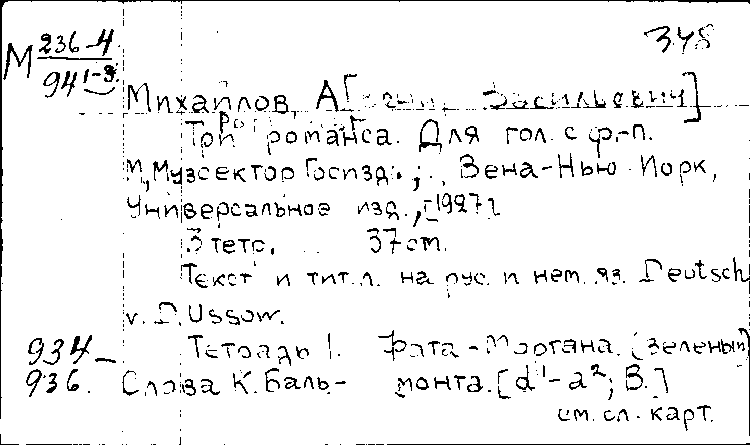 М 236-4
94 1-3.
348
Михайлов, А[ Васильевич]
Три романса. Для гол. с ф.-п.
М., Музсектор Госизд.; Вена-Нью Йорк,
Универсальное изд., [1927]
3 тетр. 37 cm.
Текст и тит. л. на рус. и нем. яз. Deutsch
v. D. Ussow.
934- Тетрадь 1. Фата-Моргана. (Зеленый)
936. Слова К. Баль- монта. [d¹-a²; В.]
см. сл. карт.